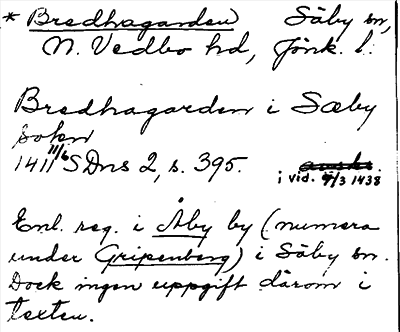 * Bredhagarden Säby sn,
N. Vedbo hd, Jönk. l.
Bredhagarden i Sæby
sokn
1411 11/6 SDns 2, s. 395.
i vid. 9/3 1438
Enl. reg. i Åby by (numera
under Gripenberg) i Säby sn.
Dock ingen uppgift därom i
texten.